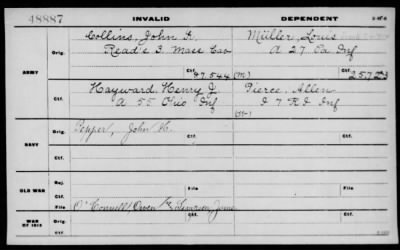 48887 INVALID DEPENDENT
Collins, John A. Müller, Louis
Orig. Read's 3 Mass Cav A 27 Pa Inf
ARMY Ctf. 97.544 (M) Ctf.
Hayward, Henry J. Pierce, Allen
A 55 Ohio Inf D 7 R I Inf
Ctf. (M)
Orig. Pepper, John H.
NAVY
Ctf.
OLD WAR Rej.
Ctf. File File
WAR OF 1812 O'Connell Owen